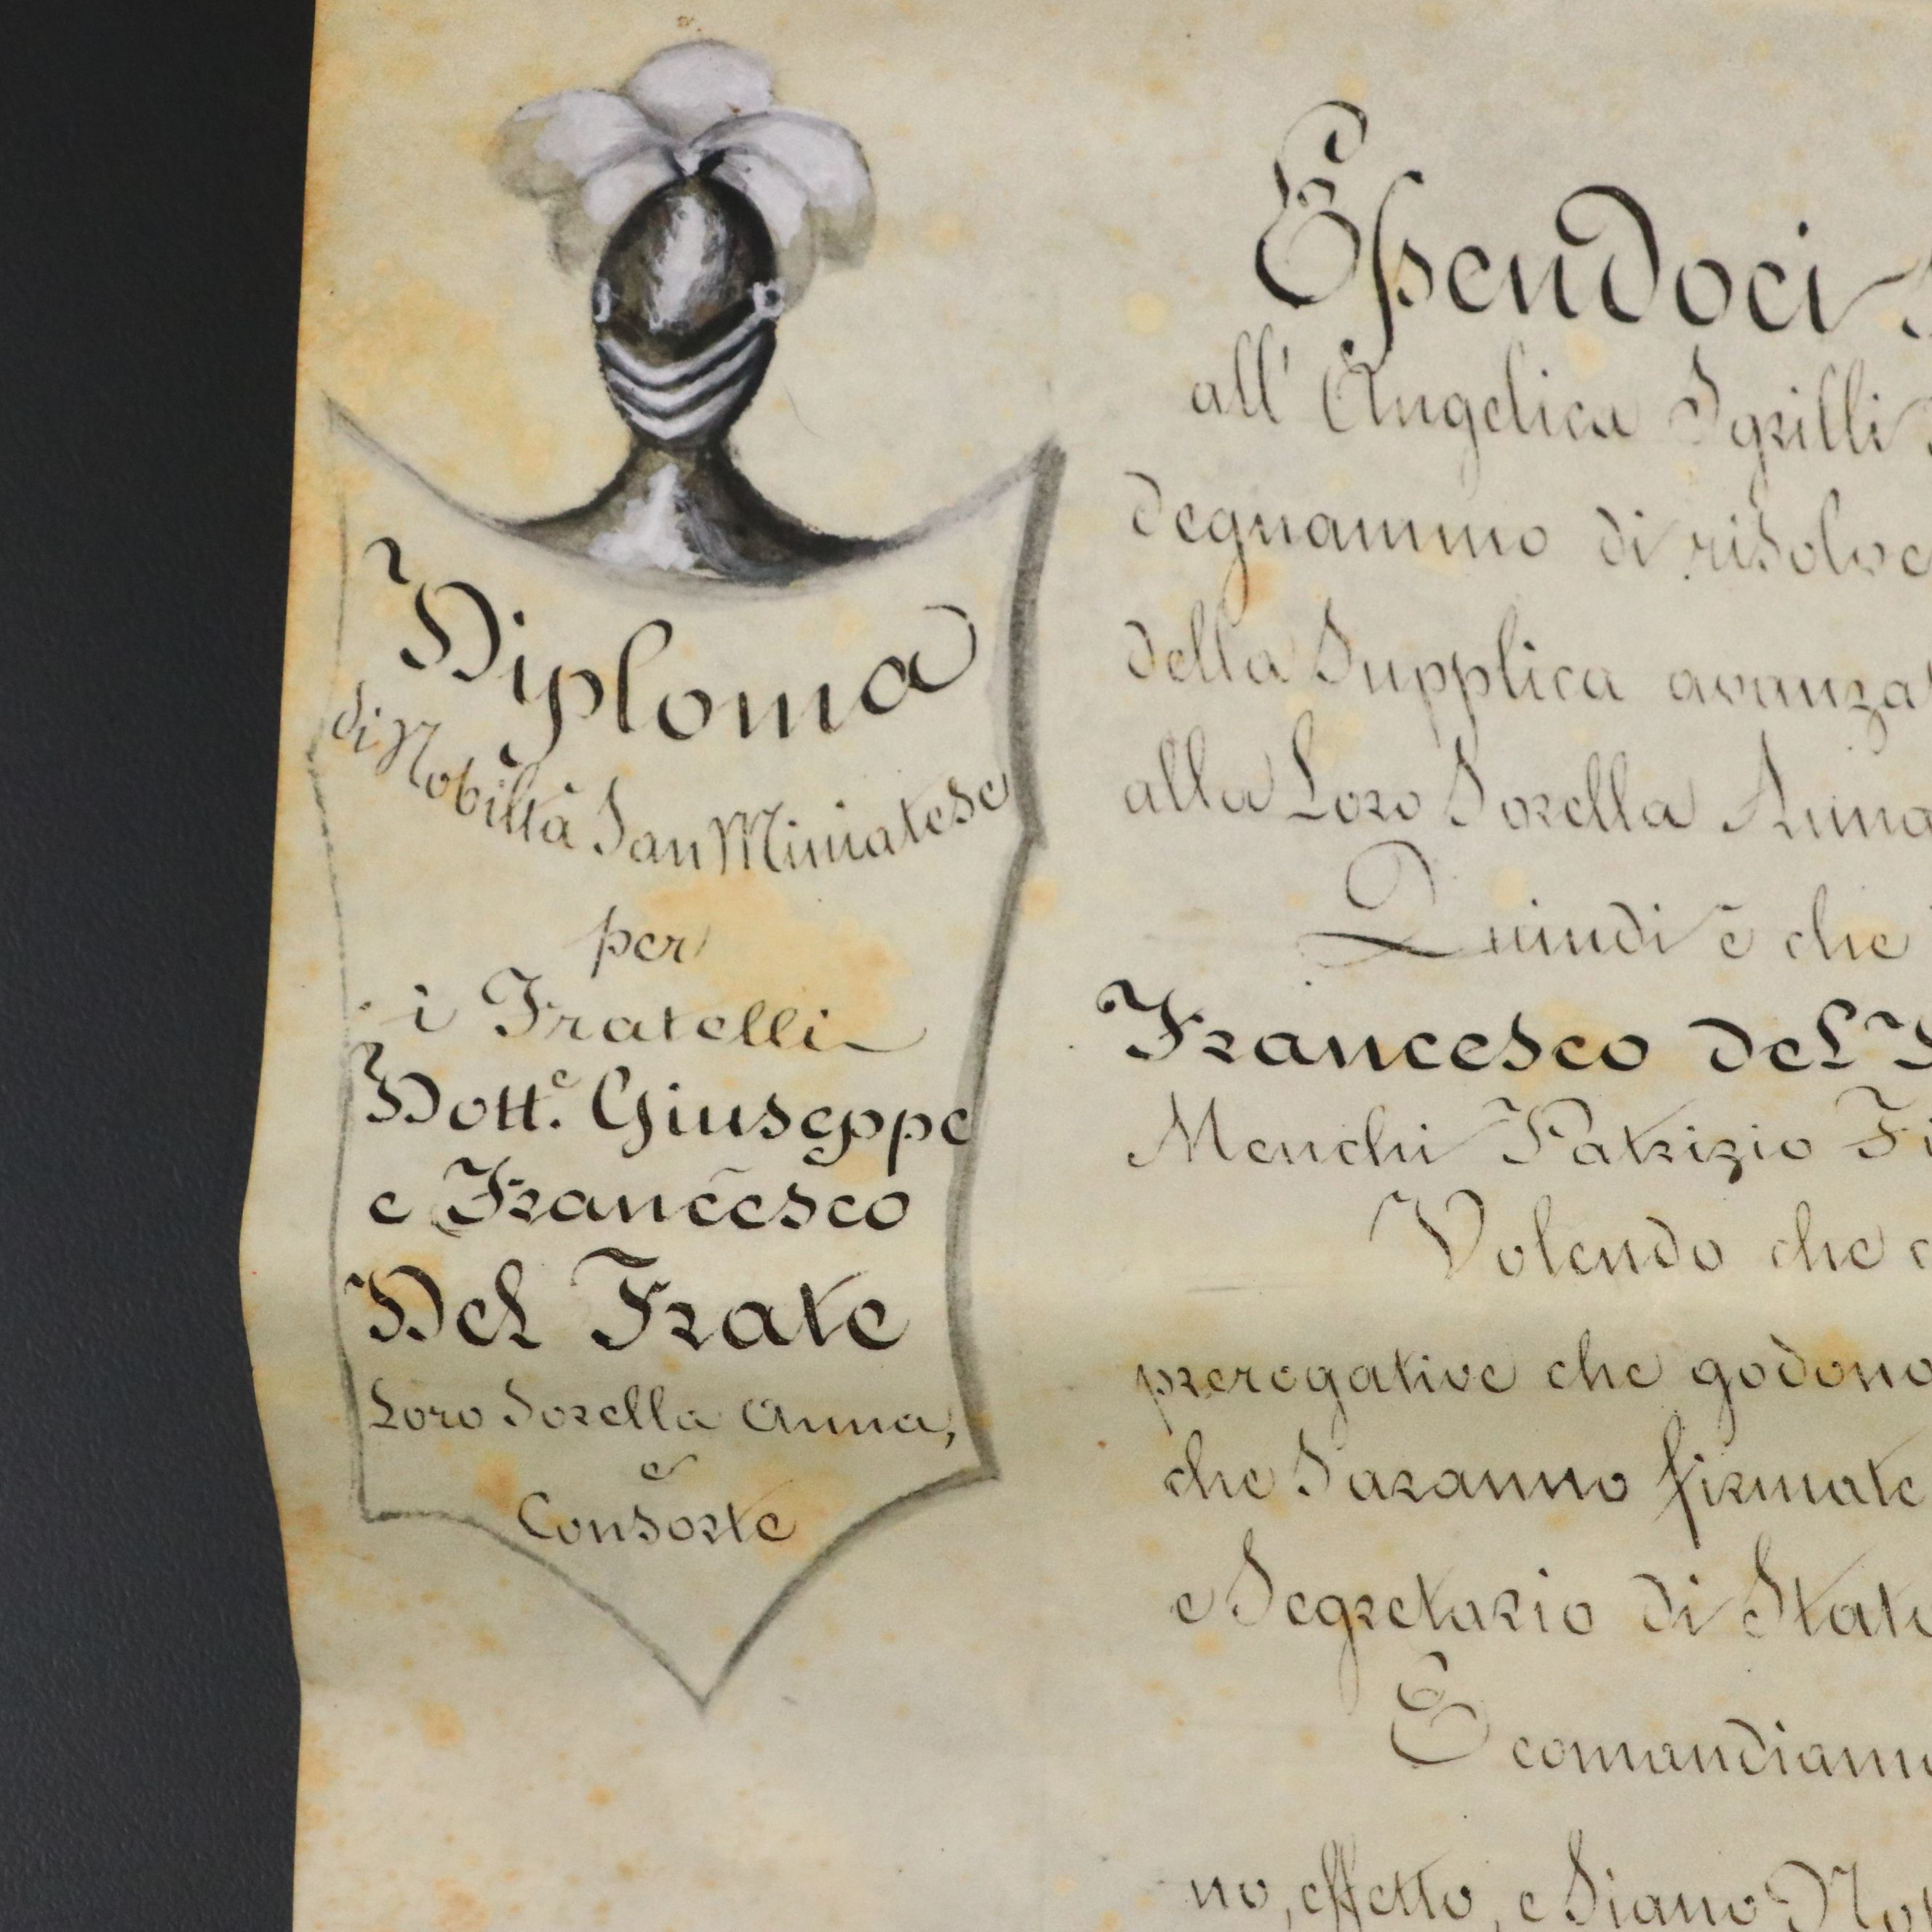 Diploma
di Nobiltà San Miniatese
per
i Fratelli
Dott.e Giuseppe
e Francesco
Del Frate
Loro Sorella Anna,
e
Consorte
Essendoci
all' Angelica Sgrilli
degnammo di risolve
della Supplica avanza
alla Loro Sorella Anna
Quindi è che
Francesco del
Menchi Patrizio Fi
Volendo che
prerogative che godono
che Saranno firmate
e Segretario di Stat
E comandiamo
no, effetto, e Siano No